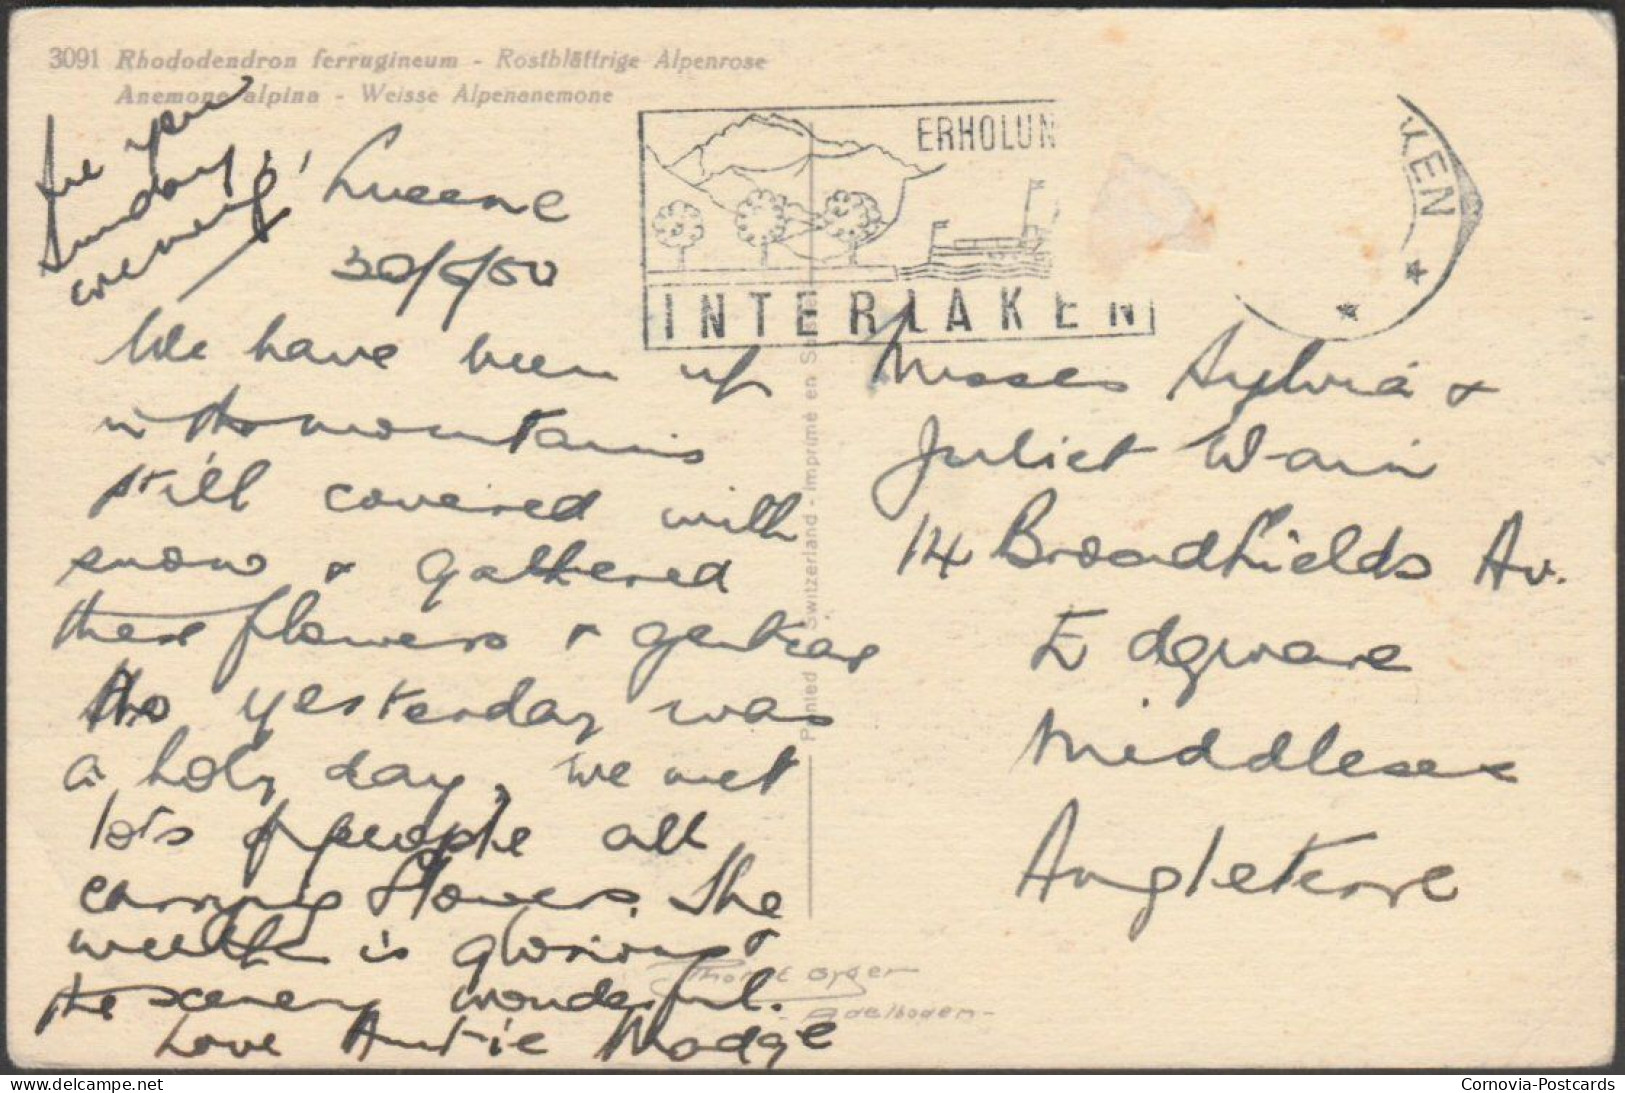 3091 Rhododendron ferrugineum - Rostblättrige Alpenrose
Anemone alpina - Weisse Alpenanemone
See you
Sunday
evening!
Lucerne
30/5/50
We have been up
in the mountains
still covered with
snow & gathered
these flowers & gentians
As yesterday was
a holy day, we met
lots of people all
carrying flowers. The
weather is glorious &
the scenery wonderful.
Love Auntie Madge
ERHOLUN
INTERLAKEN
KEN
Misses Sylvia &
Juliet Wain
14 Broadfields Av.
Edgware
Middlesex
Angleterre
Printed in Switzerland - Imprimé en Suisse
Gyger
- Adelboden -
Cornovia-Postcards